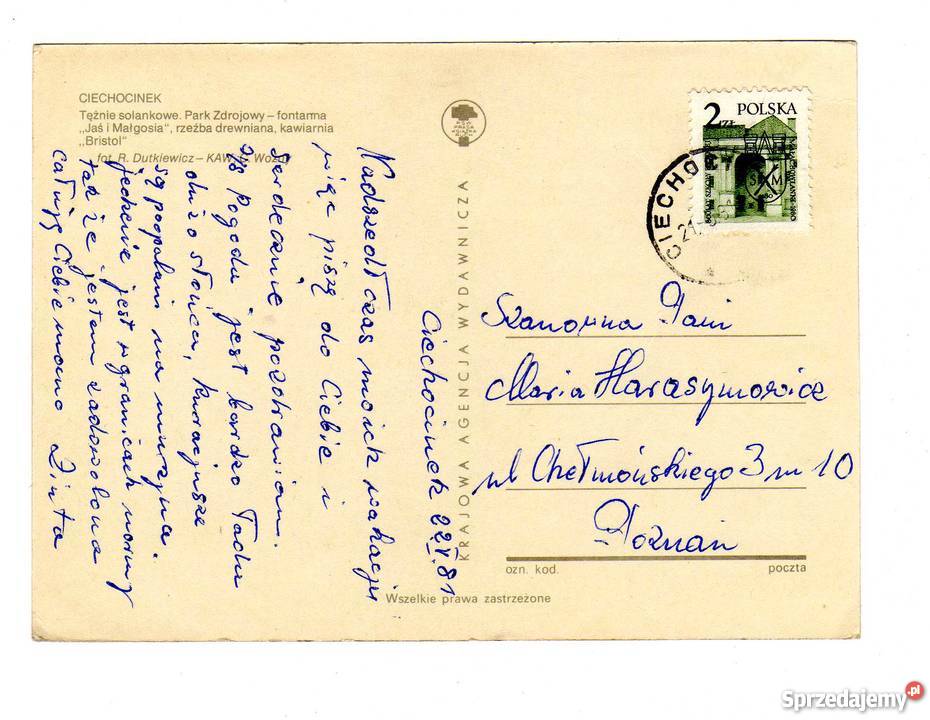 CIECHOCINEK
Tężnie solankowe. Park Zdrojowy – fontanna
„Jaś i Małgosia", rzeźba drewniana, kawiarnia
„Bristol"
fot. R. Dutkiewicz – KAW, J.
KRAJOWA AGENCJA WYDAWNICZA
2 ZŁ POLSKA
CIECHOC
21.
Ciechocinek 22 V. 81
Nadszedł czas moich wakacji
więc piszę do Ciebie i
serdecznie pozdrawiam.
Pogoda jest bardzo ładna
dużo słońca, kuracjusze
są poopalani na murzyna.
jedzenie jest w granicach normy
także jestem zadowolona
całuję Ciebie mocno Zinta
Szanowna Pani
Maria Harasymowicz
ul Chełmońskiego 3 m 10
Poznań
ozn. kod. poczta
Wszelkie prawa zastrzeżone
Sprzedajemy.pl